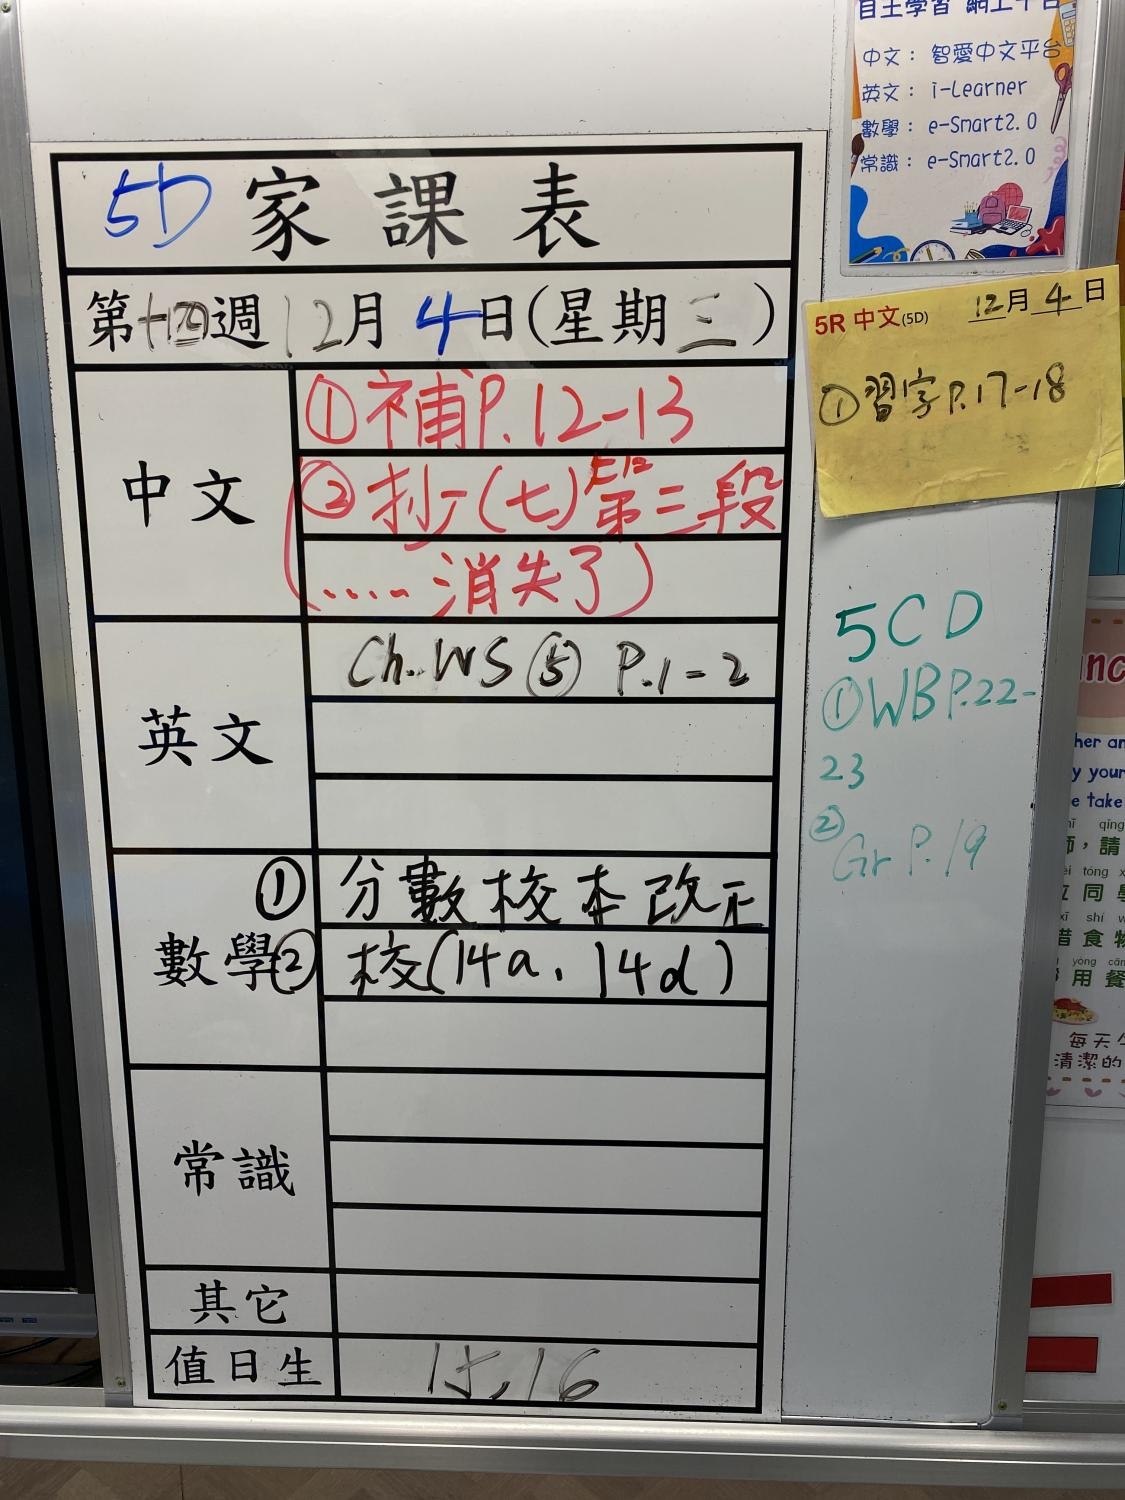 5D 家課表
第十四週 12月 4日(星期三)
中文
①補P.12-13
②抄(七)第三段
(.....消失了)
英文
Ch.WS⑤ P.1-2
數學
① 分數校本改正
② 校(14a、14d)
常識
其它
值日生
15,16
自主學習 網上平台
中文: 智愛中文平台
英文: i-Learner
數學: e-Smart2.0
常識: e-Smart2.0
5R 中文(5D) 12月4日
①習字P.17-18
5CD
①WBP.22-
23
②Gr P.19
her an
y your
e take
qǐng
師,請
tóng
位同學
xī shí w
惜食物
yòng cān
用餐
每天
清潔的